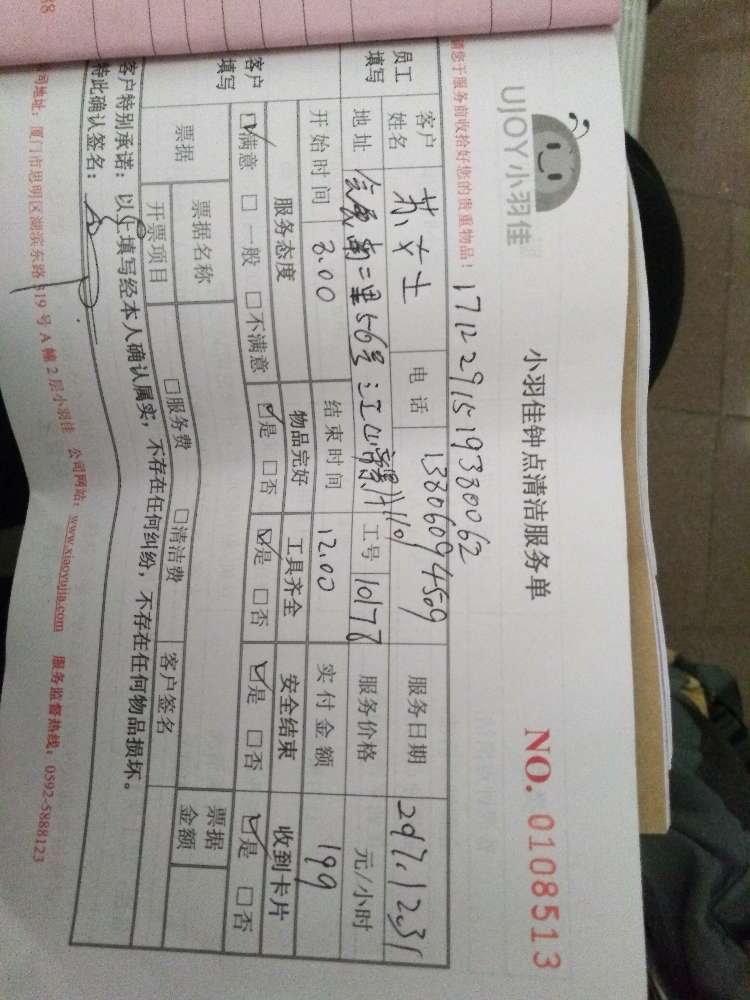 UJOY小羽佳
小羽佳钟点清洁服务单
NO. 0108513
请您于服务前收拾好您的贵重物品！ 171229151938 0062
员工填写 客户姓名 苏女士 电话 13806094509 服务日期 2017.12.31
地址 南二里56号 工号 10178 服务价格 元/小时
开始时间 8.00 结束时间 12.00 实付金额 199
客户填写 服务态度 物品完好 工具齐全 安全结束 收到卡片
☑满意 □一般 □不满意 ☑是 □否 ☑是 □否 ☑是 □否 ☑是 □否
票据 票据名称 票据金额
开票项目 □服务费 □清洁费 客户签名
客户特别承诺：以上填写经本人确认属实，不存在任何纠纷，不存在任何物品损坏。
特此确认签名：
公司地址：厦门市思明区湖滨东路319号A幢2层小羽佳 公司网站：www.xiaoyujia.com 服务监督热线：0592-5888123